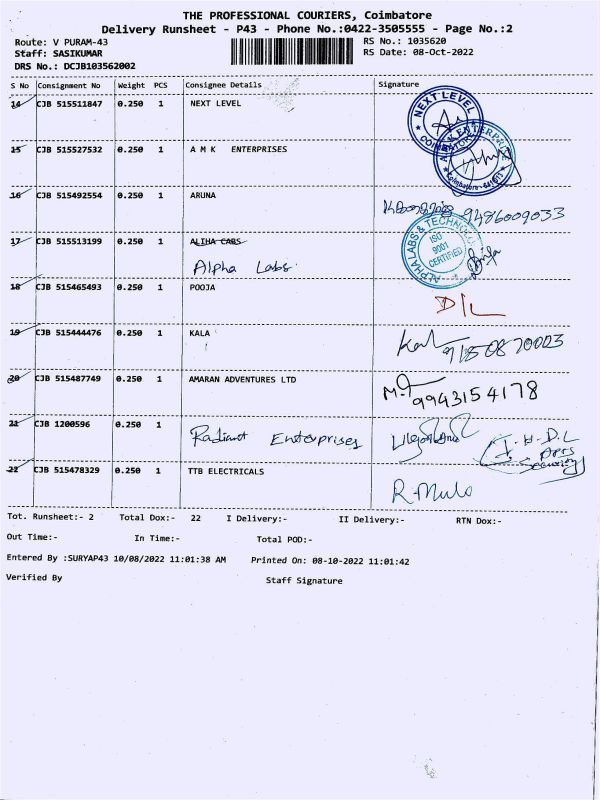 THE PROFESSIONAL COURIERS, Coimbatore
Delivery Runsheet - P43 - Phone No.:0422-3505555 - Page No.:2
Route: V PURAM-43
Staff: SASIKUMAR
DRS No.: DCJB103562002
RS No.: 1035620
RS Date: 08-Oct-2022
S No Consignment No Weight PCS Consignee Details Signature
14 CJB 515511847 0.250 1 NEXT LEVEL
NEXT LEVEL
COIMBATORE
15 CJB 515527532 0.250 1 A M K ENTERPRISES
16 CJB 515492554 0.250 1 ARUNA 9486009033
17 CJB 515513199 0.250 1 ALIHA CABS
Alpha Labs
ALPHA LABS & TECHNOLO
ISO
9001
CERTIFIED
18 CJB 515465493 0.250 1 POOJA D/L
19 CJB 515444476 0.250 1 KALA
20 CJB 515487749 0.250 1 AMARAN ADVENTURES LTD 9943154178
21 CJB 1200596 0.250 1 Radiant Enterprises
22 CJB 515478329 0.250 1 TTB ELECTRICALS
Tot. Runsheet:- 2 Total Dox:- 22 I Delivery:- II Delivery:- RTN Dox:-
Out Time:- In Time:- Total POD:-
Entered By :SURYAP43 10/08/2022 11:01:38 AM Printed On: 08-10-2022 11:01:42
Verified By Staff Signature